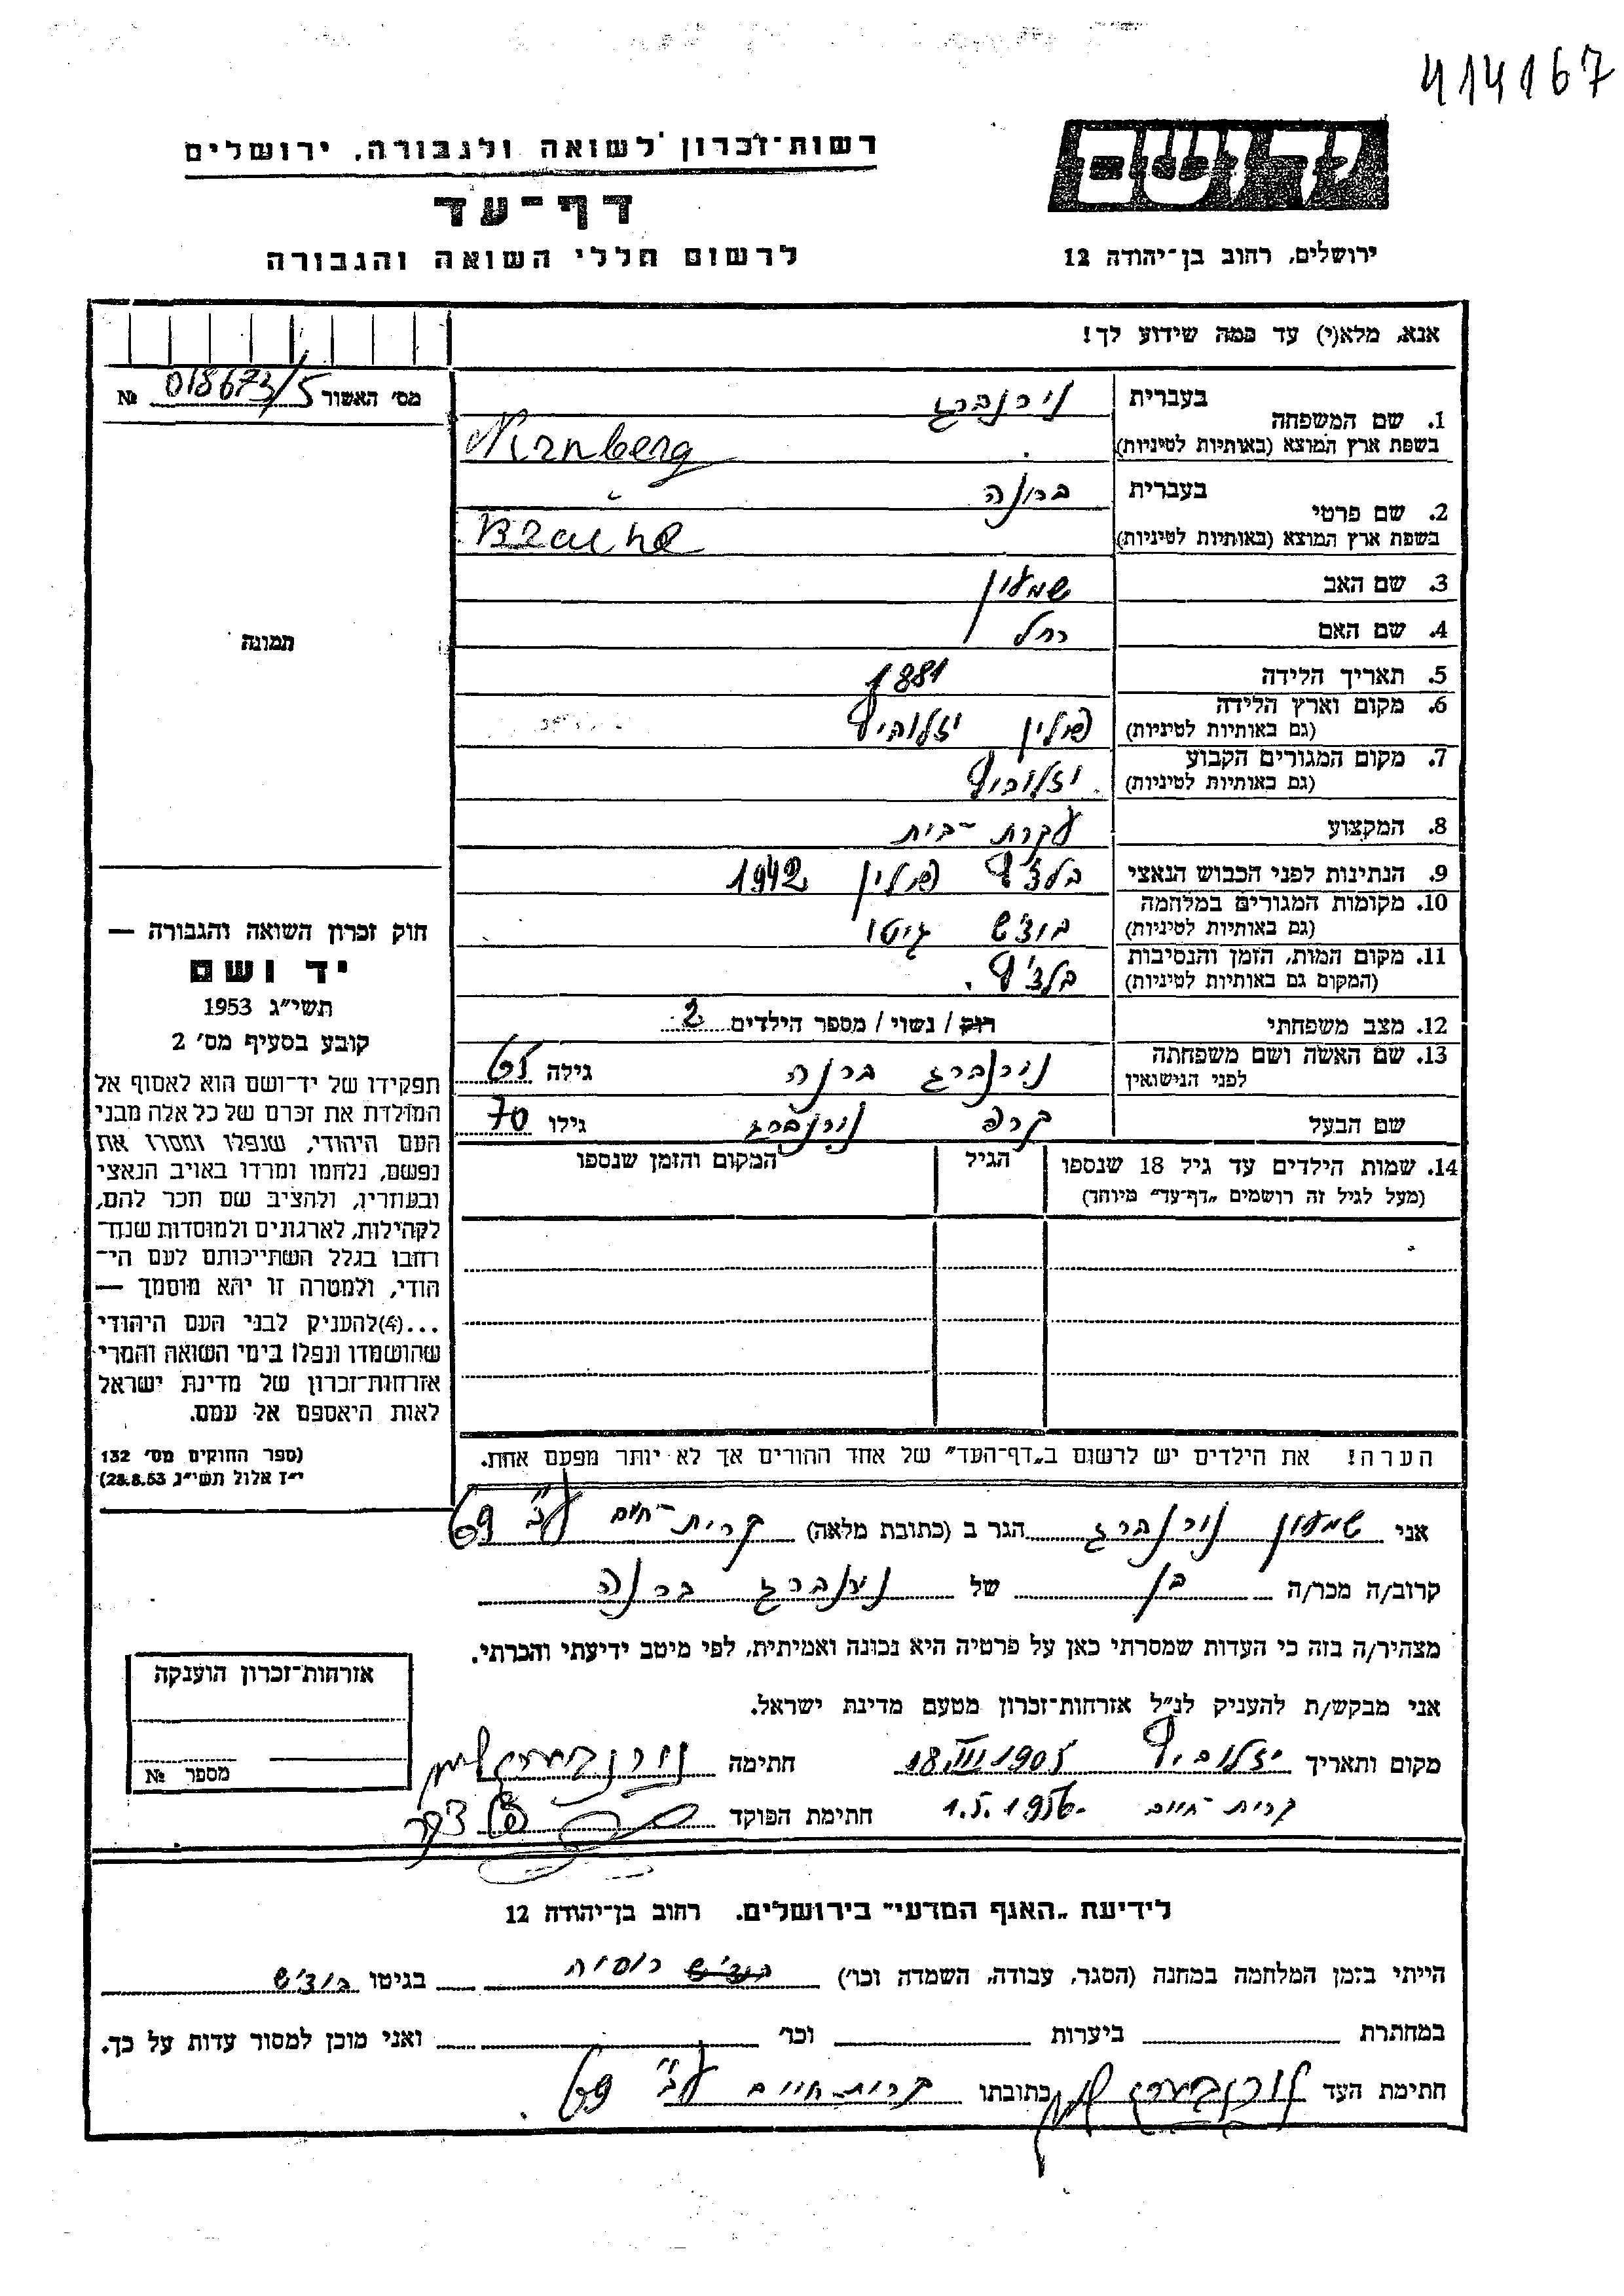 414167
יד ושם
רשות־זכרון לשואה ולגבורה, ירושלים
דף־עד
לרשום חללי השואה והגבורה
ירושלים, רחוב בן־יהודה 12
אנא, מלא(י) עד כמה שידוע לך!
מס׳ האשור 018673/5 №
1. שם המשפחה בעברית נירנברג
בשפת ארץ המוצא (באותיות לטיניות) Nirnberg
2. שם פרטי בעברית ברונה
בשפת ארץ המוצא (באותיות לטיניות)
3. שם האב שמעון
4. שם האם רחל
5. תאריך הלידה 1881
6. מקום וארץ הלידה פולין יזלוביץ
(גם באותיות לטיניות)
7. מקום המגורים הקבוע יזלוביץ
(גם באותיות לטיניות)
8. המקצוע עקרת־בית
9. הנתינות לפני הכבוש הנאצי בלצ׳ץ פולין 1942
10. מקומות המגורים במלחמה
(גם באותיות לטיניות) בוצ׳ש גיטו
11. מקום המות, הזמן והנסיבות
(המקום גם באותיות לטיניות) בלצ׳ץ.
12. מצב משפחתי רוק / נשוי / מספר הילדים 2
13. שם האשה ושם משפחתה נירנברג ברנה גילה 65
לפני הנישואין
שם הבעל קרפ נורנברג גילו 70
14. שמות הילדים עד גיל 18 שנספו הגיל המקום והזמן שנספו
(מעל לגיל זה רושמים „דף־עד״ מיוחד)
תמונה
חוק זכרון השואה והגבורה —
יד ושם
תשי״ג 1953
קובע בסעיף מס׳ 2
תפקידו של יד־ושם הוא לאסוף אל
המולדת את זכרם של כל אלה מבני
העם היהודי, שנפלו ומסרו את
נפשם, נלחמו ומרדו באויב הנאצי
ובעוזריו, ולהציב שם וזכר להם,
לקהילות, לארגונים ולמוסדות שנח־
רבו בגלל השתייכותם לעם הי־
הודי, ולמטרה זו יהא מוסמך —
...(4)להעניק לבני העם היהודי
שהושמדו ונפלו בימי השואה והמרי
אזרחות־זכרון של מדינת ישראל
לאות היאספם אל עמם.
(ספר החוקים מס׳ 132
י״ז אלול תשי״ג 28.8.53)
הערה! את הילדים יש לרשום ב„דף־העד״ של אחד ההורים אך לא יותר מפעם אחת.
אני שמעון נורנברג הגר ב (כתובת מלאה) קרית־חיים 69
קרוב/ה מכר/ה בן של נירנברג ברנה
מצהיר/ה בזה כי העדות שמסרתי כאן על פרטיה היא נכונה ואמיתית, לפי מיטב ידיעתי והכרתי.
אני מבקש/ת להעניק לנ״ל אזרחות־זכרון מטעם מדינת ישראל.
מקום ותאריך יזלוביץ 18 III 1905 חתימה
קרית־חיים 1.5.1956 חתימת הפוקד
אזרחות־זכרון הוענקה
מספר №
לידיעת „האגף המדעי״ בירושלים. רחוב בן־יהודה 12
הייתי בזמן המלחמה במחנה (הסגר, עבודה, השמדה וכו׳) בוצ׳ש רוסיה בגיטו בוצ׳ש
במחתרת ביערות וכו׳ ואני מוכן למסור עדות על כך.
חתימת העד כתובתו קרית־חיים 69.